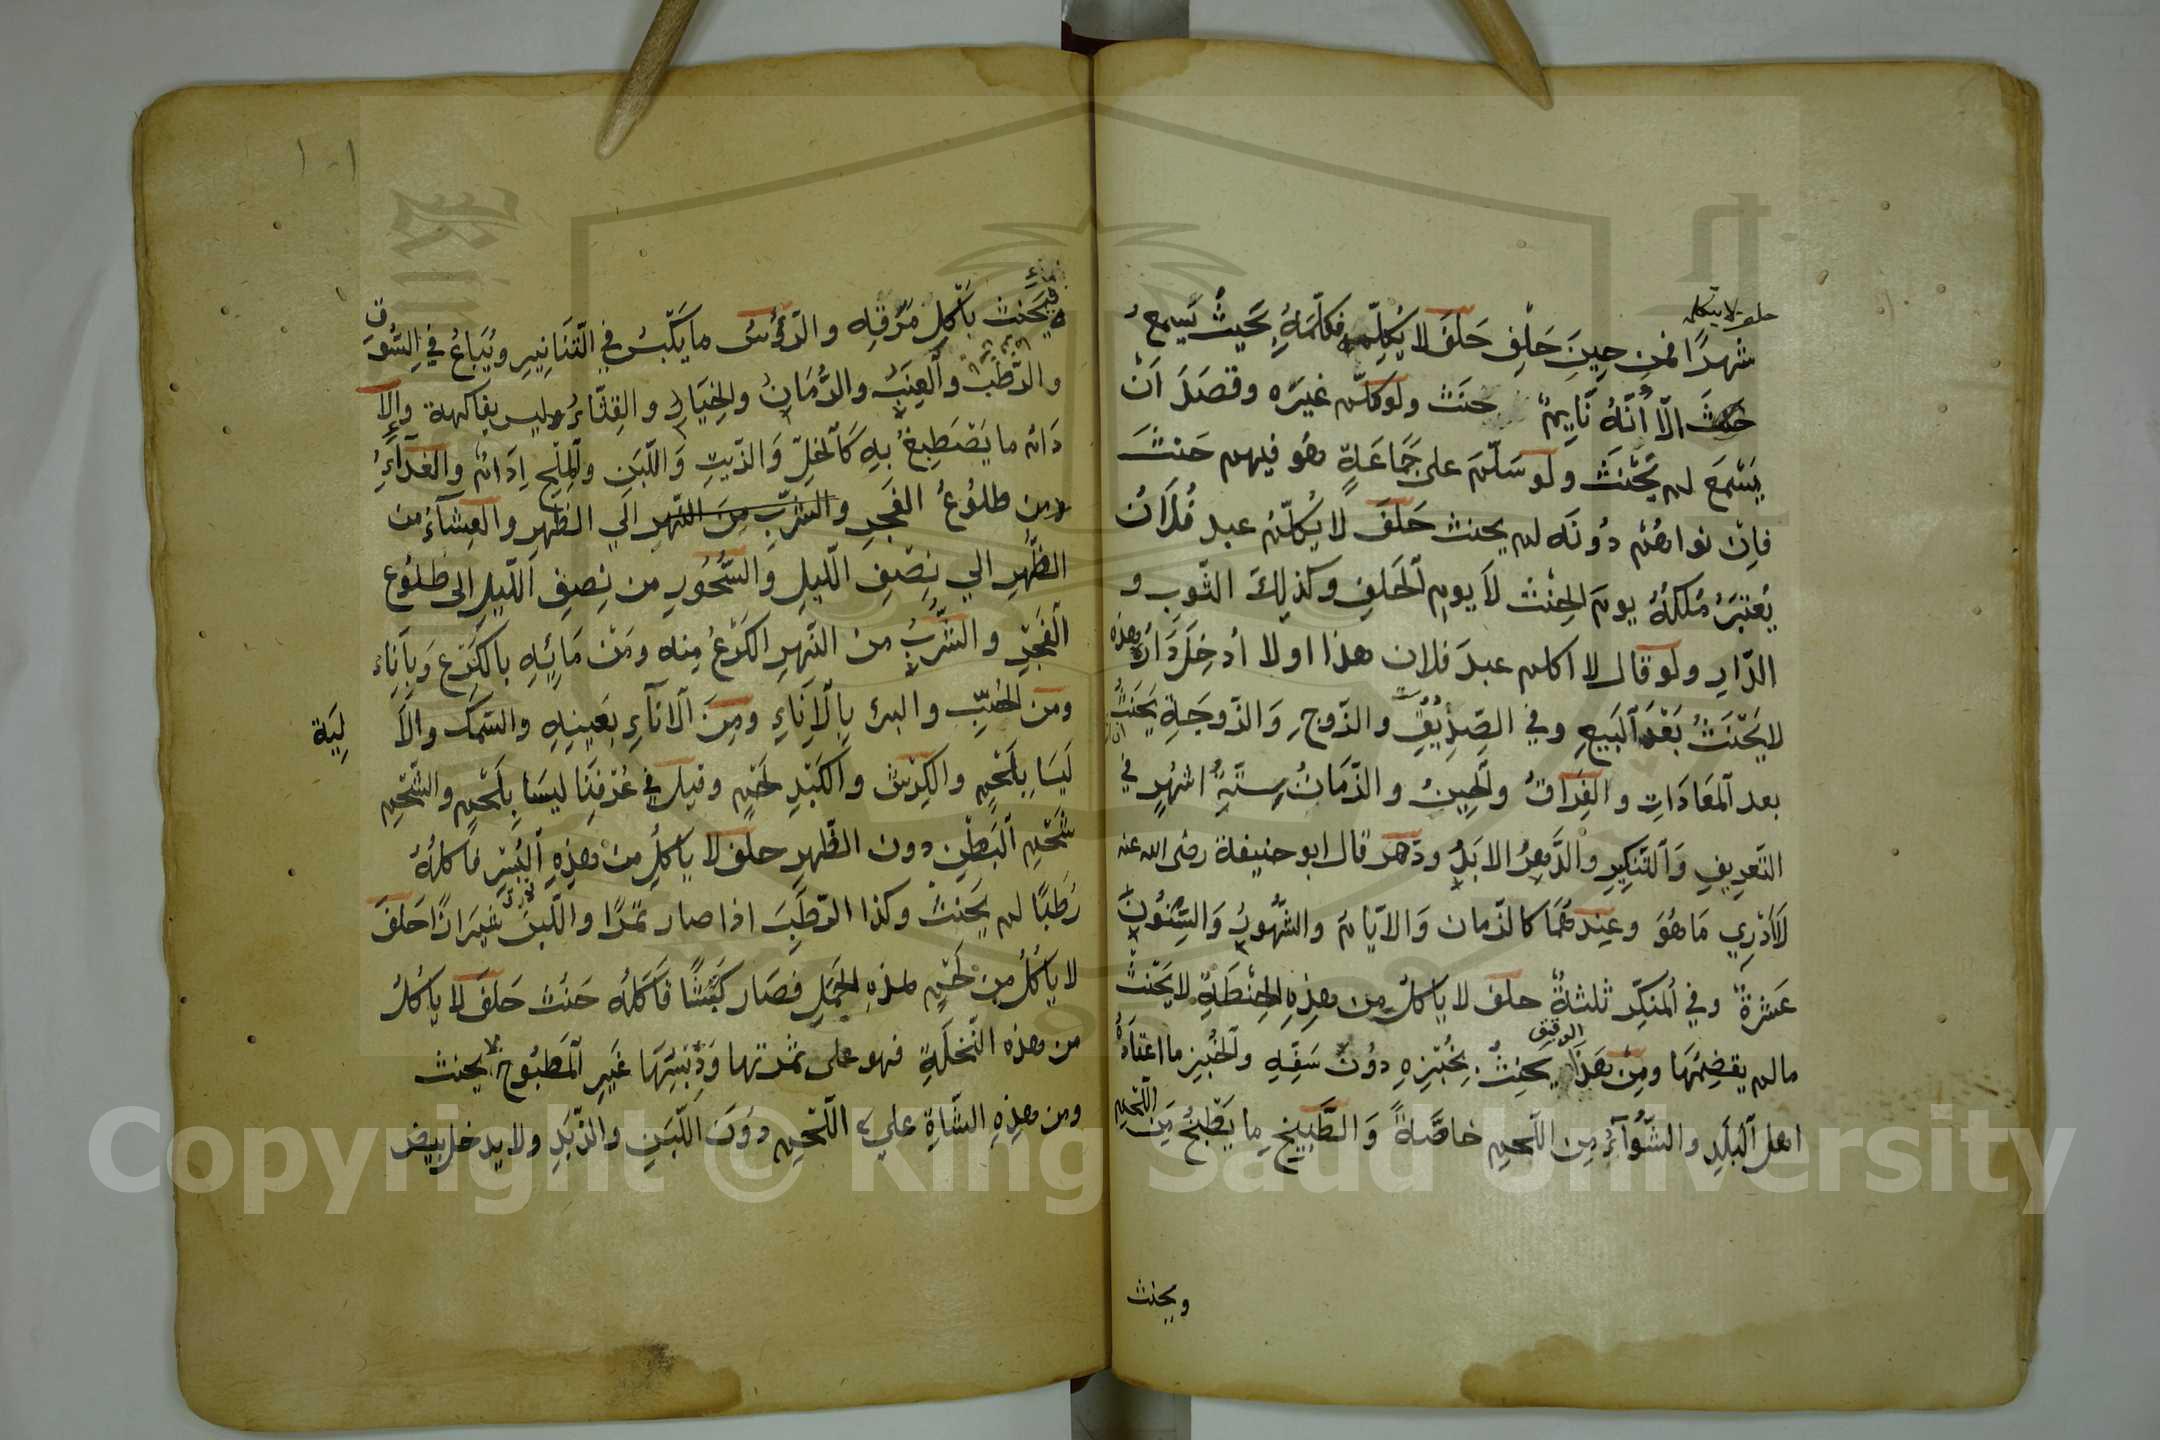 حلف لا يتكلم
شهرًا فمن حِينَ حَلْفِ حَلَفَ لا يُكلِّمه فكلّمَهُ بِحَيثُ يَسمعُ
حَنثَ الّا اَنَّهُ نَايِمٌ حنَث ولَو كلّم غيرَه وقصَدَ اَنْ
يَسْمَعَ لم يَحْنَثْ ولَو سَلّمَ على جَمَاعَةٍ هُو فيهم حَنثَ
فاِنْ نواهُمْ دُونَه لم يحنث حَلَفَ لا يُكلّمُ عبد فُلَانٌ
يُعْتبَرُ مُلكُهُ يومَ الحِنْث لَا يوم الحَلفِ وكذلِكَ الثّوبِ و
الدّارِ ولو قال لا اكلم عبدَ فلان هذا او لا اُدخِلَ دَارَهُ هذه
لا يَحْنَثُ بَعْدَ اَلبَيعِ وفي الصِّدِيْقِ والزّوجِ وَالزّوجَةِ يَحنَثُ
بعد اَلمعَادَاتِ والفِرَاقُ والحِينُ والزّمَانُ سِتّةُ اشهُرٍ في
التّعرِيفِ وَاَلتَنكِيرِ والدَّهرُ الابَدُ ودَهر قال ابو حنيفة رضى الله عنه
لَا اَدْرِي مَا هُوَ وعِندهُمَا كالزّمان وَالاَيّامَ والشُّهُورُ وَالسِّنُونَ
عَشرةٌ وفي اُلمنكِّر ثلثةٌ حلف لا ياكلُ مِن هذِهِ الحِنْطَةِ لا يَحْنثُ
مالم يقضِمْهَا ومِنْ هَذَا الدقيق يحنِثُ بِخُبْزِهِ دوُنَ سَفِّهِ والخُبِز ما اعتَادَهُ
اهل اَلبلَدِ والشّوُآءُ مِن اللّحمِ خاصَّةً وَالطَّبِيخِ ما يَطْبخُ مِنَ اللّحمِ
ويحنث
١٠١
فيَحنث بَاْكلِ مَرَقِهِ والرّؤُسُ ما يَكْبسُ في التّنَانِيرِ ويُبَاعُ في السُّوقِ
والرّطَبُ والعِنَبُ والرُّمَانُ والخِيَارُ والقِثّاءُ وليس بِفَاكهة والاِ
دَام ما يَصْطَبِغُ بِهِ كَالخلِّ وَالزّيتِ وَاللّبَن والمِلحِ اِدَامٌ والغدَآءُ
من طلوُعُ الفَجرِ والشرّبِ مِنَ النّهرِ الَي الظّهرِ والعِشآءُ من
الظّهرِ الي نِصْفِ اللّيلِ وَالسُّحُورِ من نِصفِ اَللّيلِ الى طلوُع
اَلفَجْرِ والشّرُبُ منْ النّهرِ اَلكَرْعُ مِنه ومَنْ مَائِهِ بالكَرْع وَبِاَنَاءِ
ومن الحُبِّ والبئ بِالاِنَاءِ ومِنَ اَلانآءِ بعَينِهِ والسّمَك والاَ
لِيَة
لَيسَا بِلَحْمٍ والكِرْش وَالكَبْدِ لحَمْ وقيل في عُرْفِنَا ليسَا بِلَحْمٍ والشّحْمِ
شَحْمِ اَلبَطْنِ دون الظّهرِ حلف لا ياكُلِ من هذِهِ اَلبُسْرِ فَاكلهُ
رُطَبًا لم يَحنثْ وكذا الرّطَبَ اذا صار تمرًا واللّبنَ شيرَازًا حَلفَ
لا ياكُلُ مِنْ لَحْمِ هذِهِ الحَمَلِ فصَار كَبْشًا فَاكلَهُ حَنث حَلفَ لا ياكُلُ
من هذه النّخلَةِ فهو على ثمرتها وَدُبْسِهَا غَيرِ اَلمَطبوُخِ يحنث
ومن هذِهِ الشّاةِ علي اللّحمِ دُونَ اَللّبَنِ والزّبَدِ ولا يدخل بيض